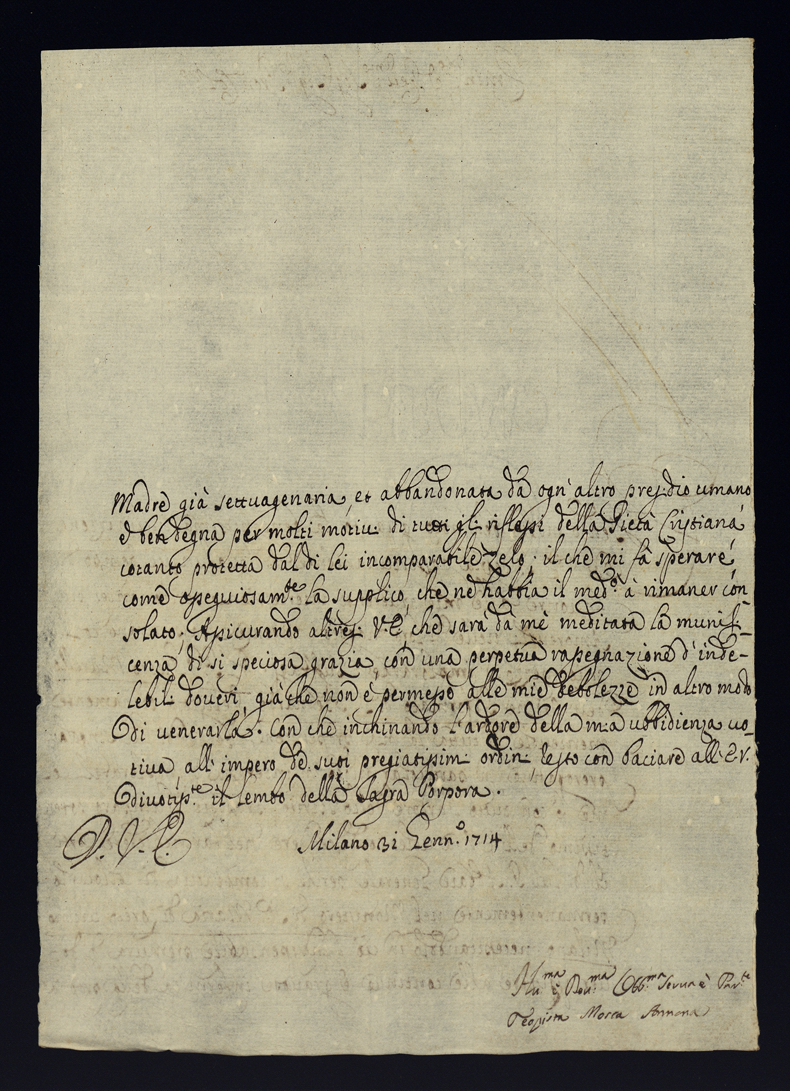 Madre già settuagenaria, et abbandonata da ogn'altro presidio umano
è ben degna per molti motivi di tutti gl. riflessi della Pietà Cristiana,
cotanto protetta dal di lei incomparabile Zelo; il che mi fà sperare,
come osseguiosam.te la supplico, che ne habbia il med.o à rimaner con-
solato; Assicurando altresi V.E. che sarà da mè meditata la munifi-
cenza, di si speciosa grazia, con una perpetua rassegnazione d'inde-
lebili doveri, già che non è permesso alle mie debolezze in altro modo
di venerarla. Con che inchinando l'ardore della mia ubbidienza vo-
tiva, all'impero de suoi pregiatissimi ordini, resto con baciare all'E.V.
divotiss.te il lembo della Sagra Porpora.
D. V. E. Milano 31 Genn.o 1714
Hu.ma è Dev.ma Obb.ma Serva è
Teopista Morra Annona